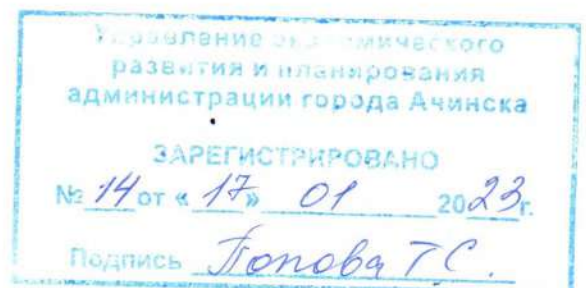 Управление экономического
развития и планирования
администрации города Ачинска
ЗАРЕГИСТРИРОВАНО
№ 14 от « 17 » 01 2023 г.
Подпись Попова Т.С.